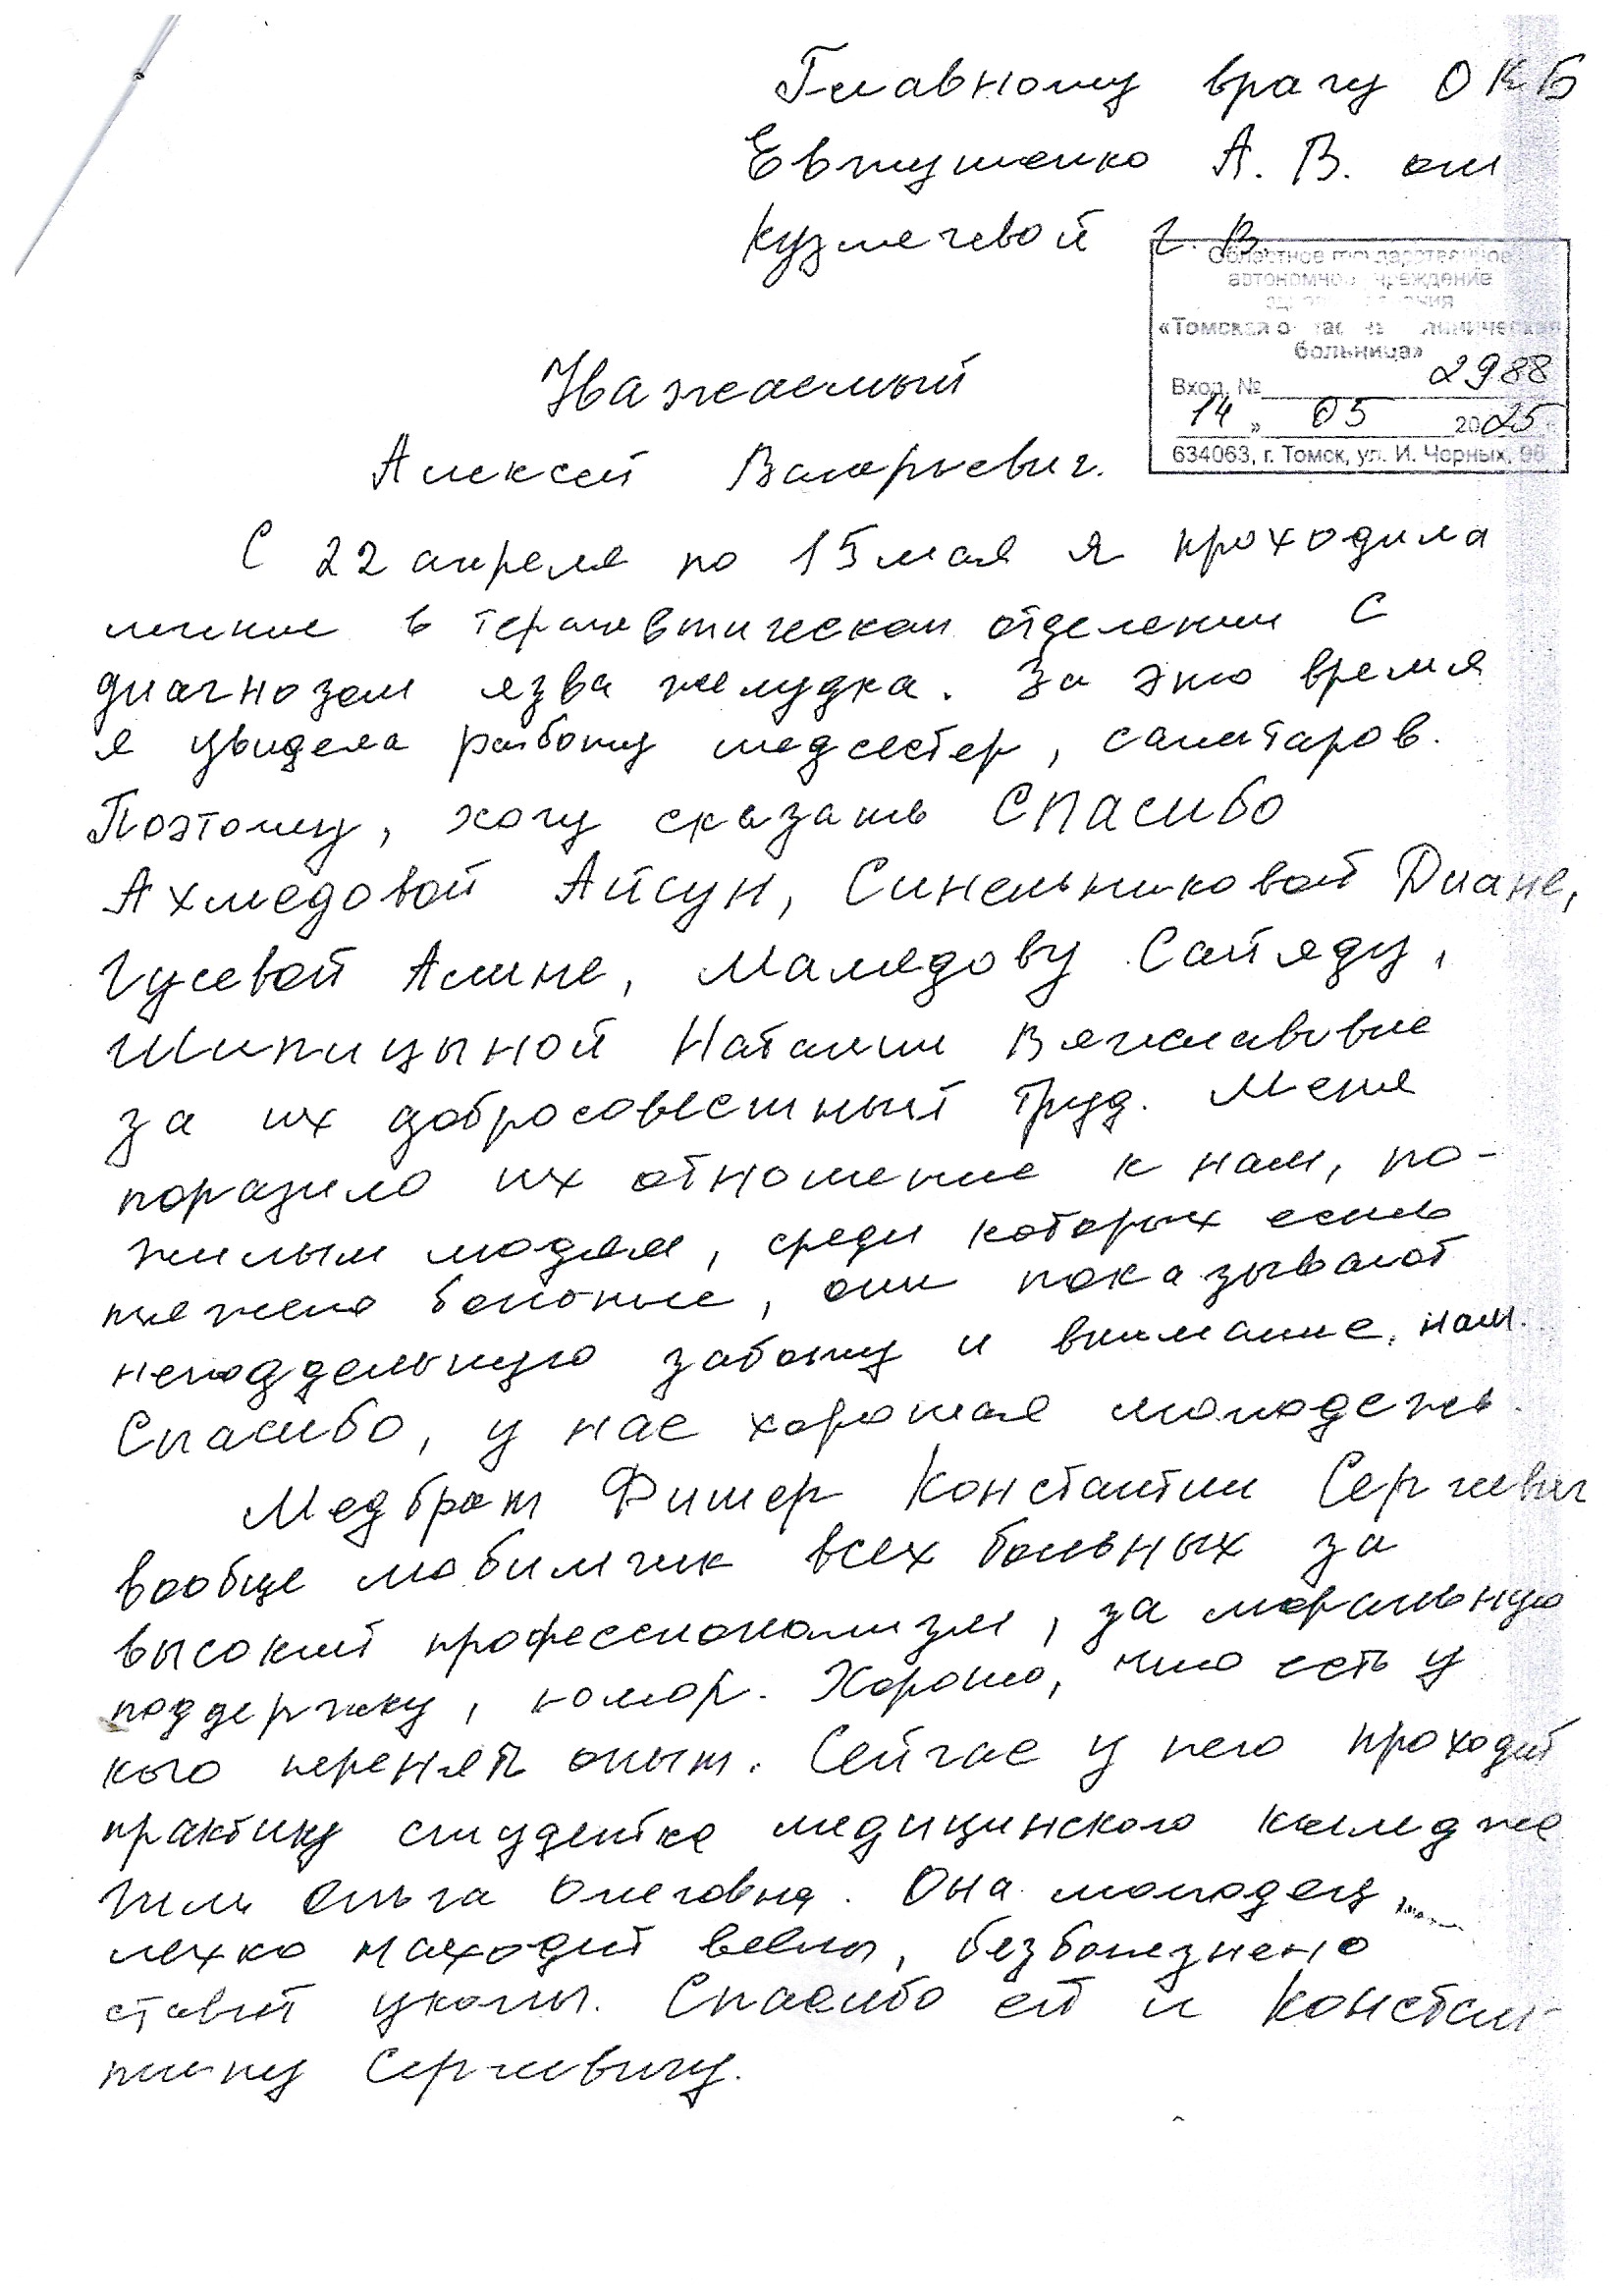 Главному врачу ОКБ
Евтушенко А. В. от
Кузмечевой Г. В.
Областное государственное
автономное учреждение
здравоохранения
«Томская областная клиническая
больница»
Вход. № 2988
14 » 05 2025
634063, г. Томск, ул. И. Черных, 96
Уважаемый
Алексей Валерьевич.
С 22 апреля по 15 мая я проходила
лечние в терапевтическом отделении с
диагнозом язва желудка. За это время
я увидела работу медсестер, санитаров.
Поэтому, хочу сказать СПАСИБО
Ахмедовой Айсун, Синельниковой Диане,
Гусевой Алине, Мамедову Сайяду,
Шипицыной Наталии Вячеславовне
за их добросовестный труд. Меня
поразило их отношение к нам, по-
жилым людям, среди которых есть
тяжело больные, они показывают
неподдельную заботу и внимание, нам.
Спасибо, у нас хорошая молодежь.
Медбрат Фишер Константин Сергеевич
вообще любимчик всех больных за
высокий профессионализм, за моральную
поддержку, юмор. Хорошо, что есть у
кого перенять опыт. Сейчас у него проходит
практику студентка медицинского колледжа
Ольга Олеговна. Она молодец,
легко находит вены, безболезнено
ставит уколы. Спасибо ей и Констан-
тину Сергеевичу.